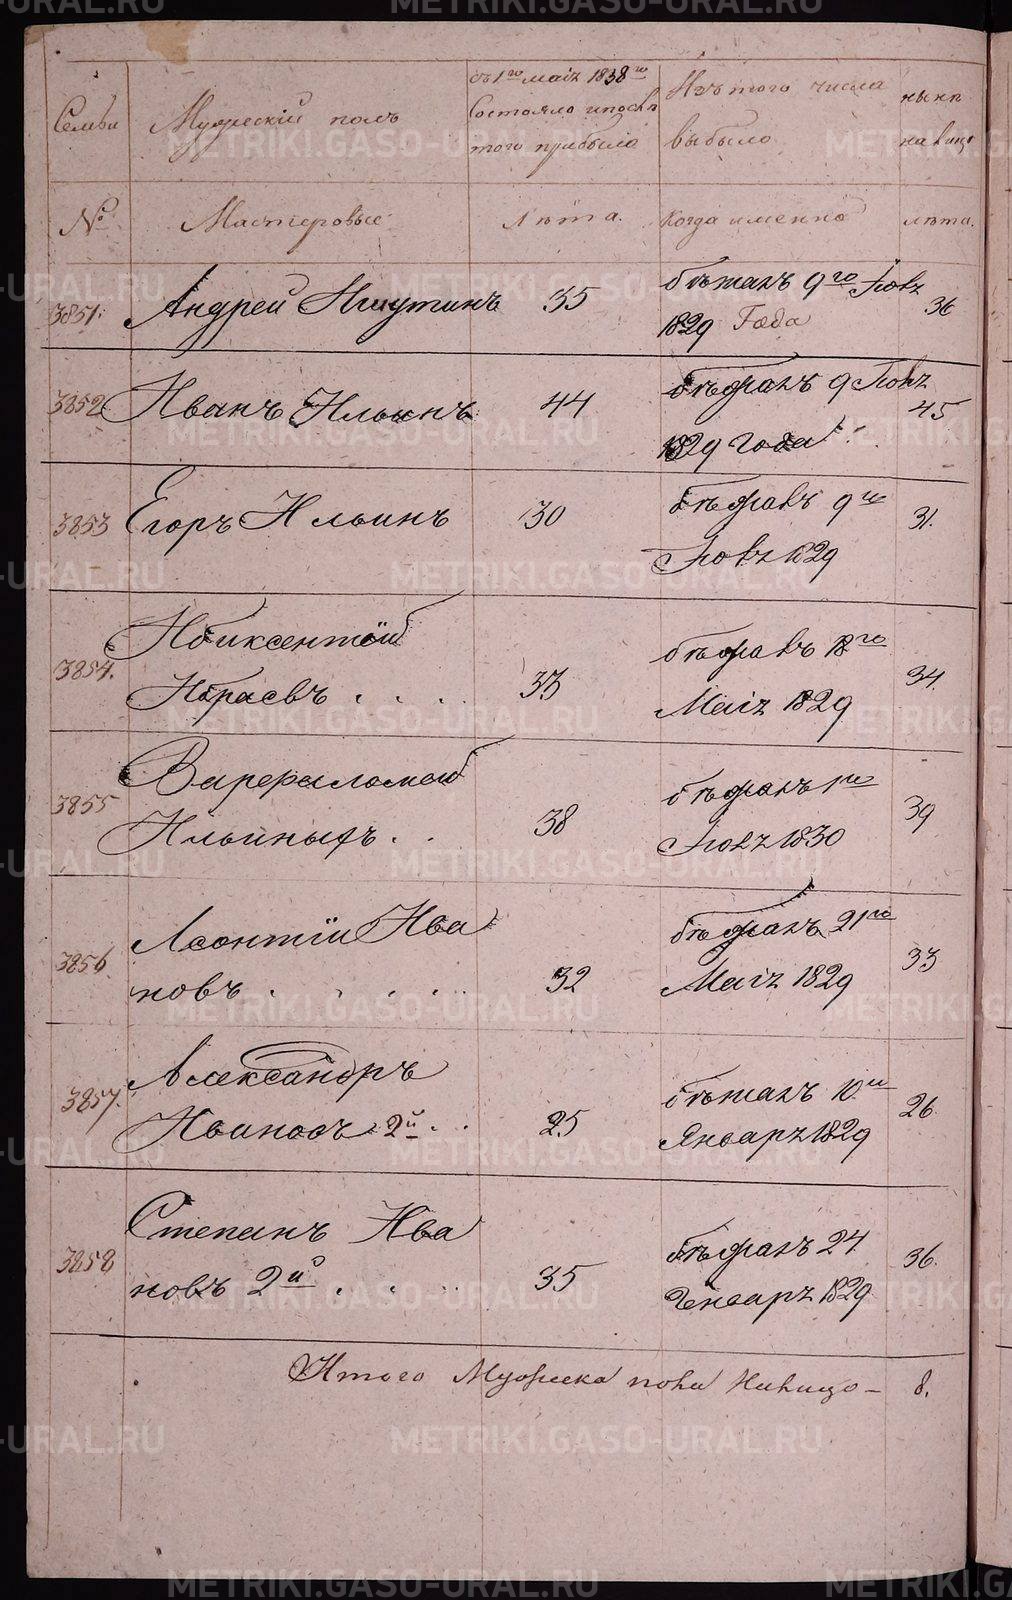 Семьи
Мужескій полъ
съ 1го маія 1838го
Состояло и послѣ
того прибыло
Изъ того числа
выбыло
нынѣ
на лицо
№
Мастеровые
Лѣта.
Когда именно
лѣта.
3851. Андрей 35 бѣжалъ 9го Іюля 36
1829 Года
3852 Иванъ Ильинъ 44 бѣжалъ 9 Іюля 45
1829 года
3853 Егоръ Ильинъ 30 бѣжалъ 9го 31.
Іюля 1829
3854. бѣжалъ 18го
33 Маія 1829 34.
3855 бѣжалъ 1го
Ильиныхъ . . 38 Іюля 1830 39
3856 Леонтій Ива бѣжалъ 21го
новъ . . . . . 32 Маія 1829 33
3857. Александръ бѣжалъ 10го 26
Ивановъ 2й . . 25 Январь 1829
3858 Степанъ Ива бѣжалъ 24 36.
новъ 2й . . . 35 Генварь 1829
Итого Мужеска пола налицо — 8.
METRIKI.GASO-URAL.RU